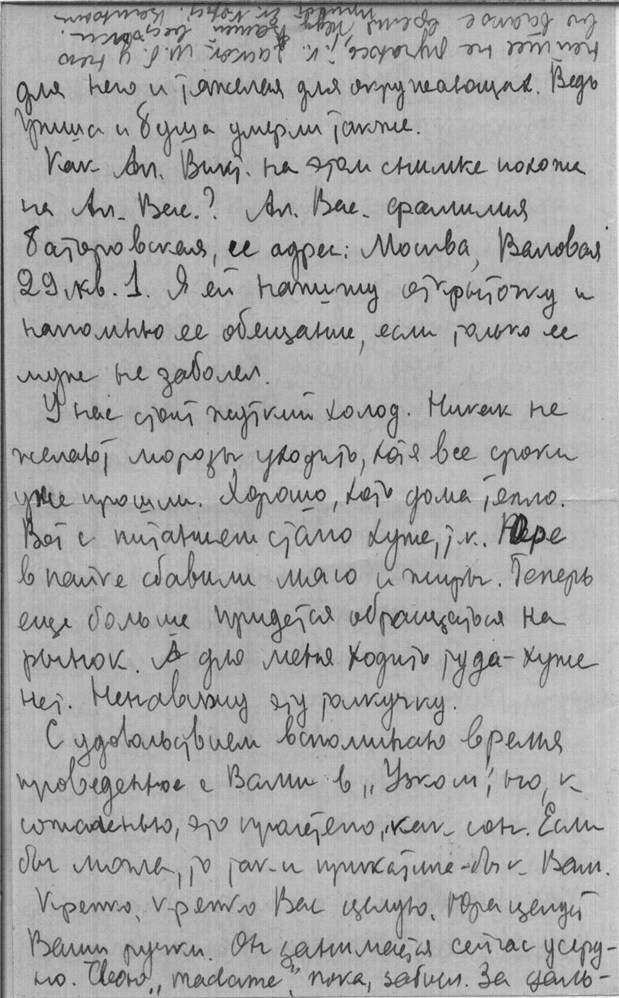 для него и тяжелая для окружающих. Ведь
Гриша и Буша умерли также.
Как Ал. Викт. на этом снимке похожа
на Ал. Вас.? Ал. Вас. фамилия
Батаровская, ее адрес: Москва, Валовая
29 кв. 1. Я ей напишу открыточку и
напомню ее обещание, если только ее
муж не заболел.
У нас стоит жуткий холод. Никак не
желают морозы уходить, хотя все сроки
уже прошли. Хорошо, хоть дома тепло.
Вот с питанием стало хуже, т.к. Юре
в пайке сбавили мясо и жиры. Теперь
еще больше придется обращаться на
рынок. А для меня ходить туда - хуже
нет. Ненавижу эту толкучку.
С удовольствием вспоминаю время
проведенное с Вами в „Узком", но, к
сожаленью, это пролетело, как сон. Если
бы могла, то так и прикатила-бы к Вам.
Крепко, крепко Вас целую. Юра целует
Ваши ручки. Он занимается сейчас усерд-
но. Свою „madame", пока, забыл. За